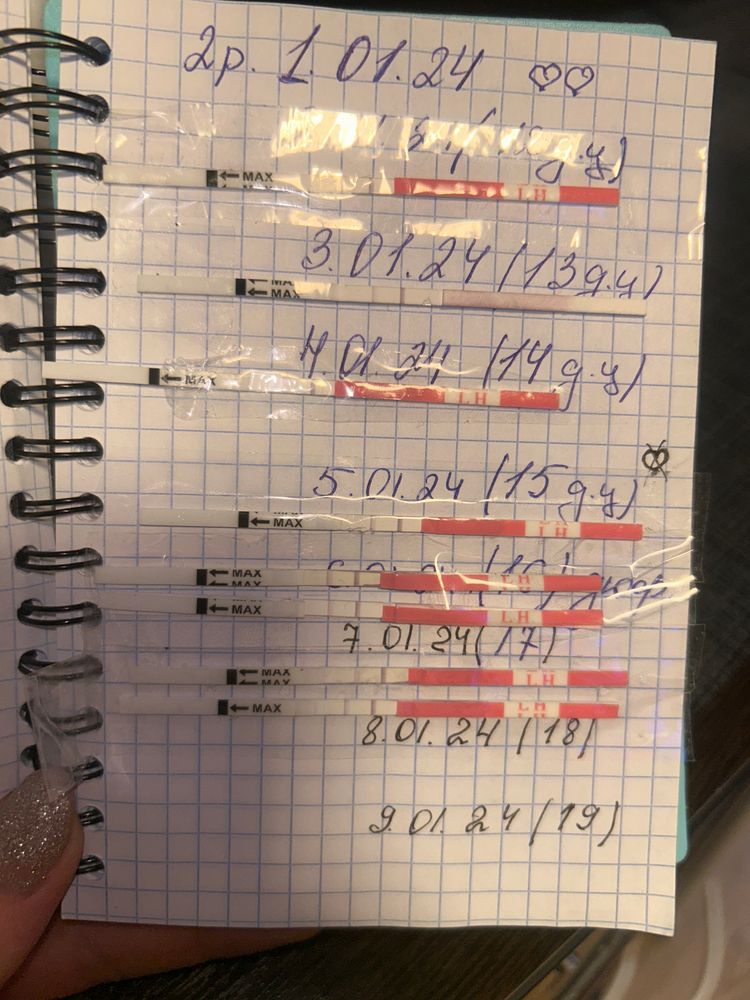 2р. 1.01.24 ♡♡
← MAX LH
3.01.24 (13 д.ц)
← MAX
4.01.24 (14 д.ц)
← MAX LH
5.01.24 (15 д.ц)
← MAX LH
← MAX LH
← MAX LH
7.01.24 (17)
← MAX LH
← MAX LH
8.01.24 (18)
9.01.24 (19)